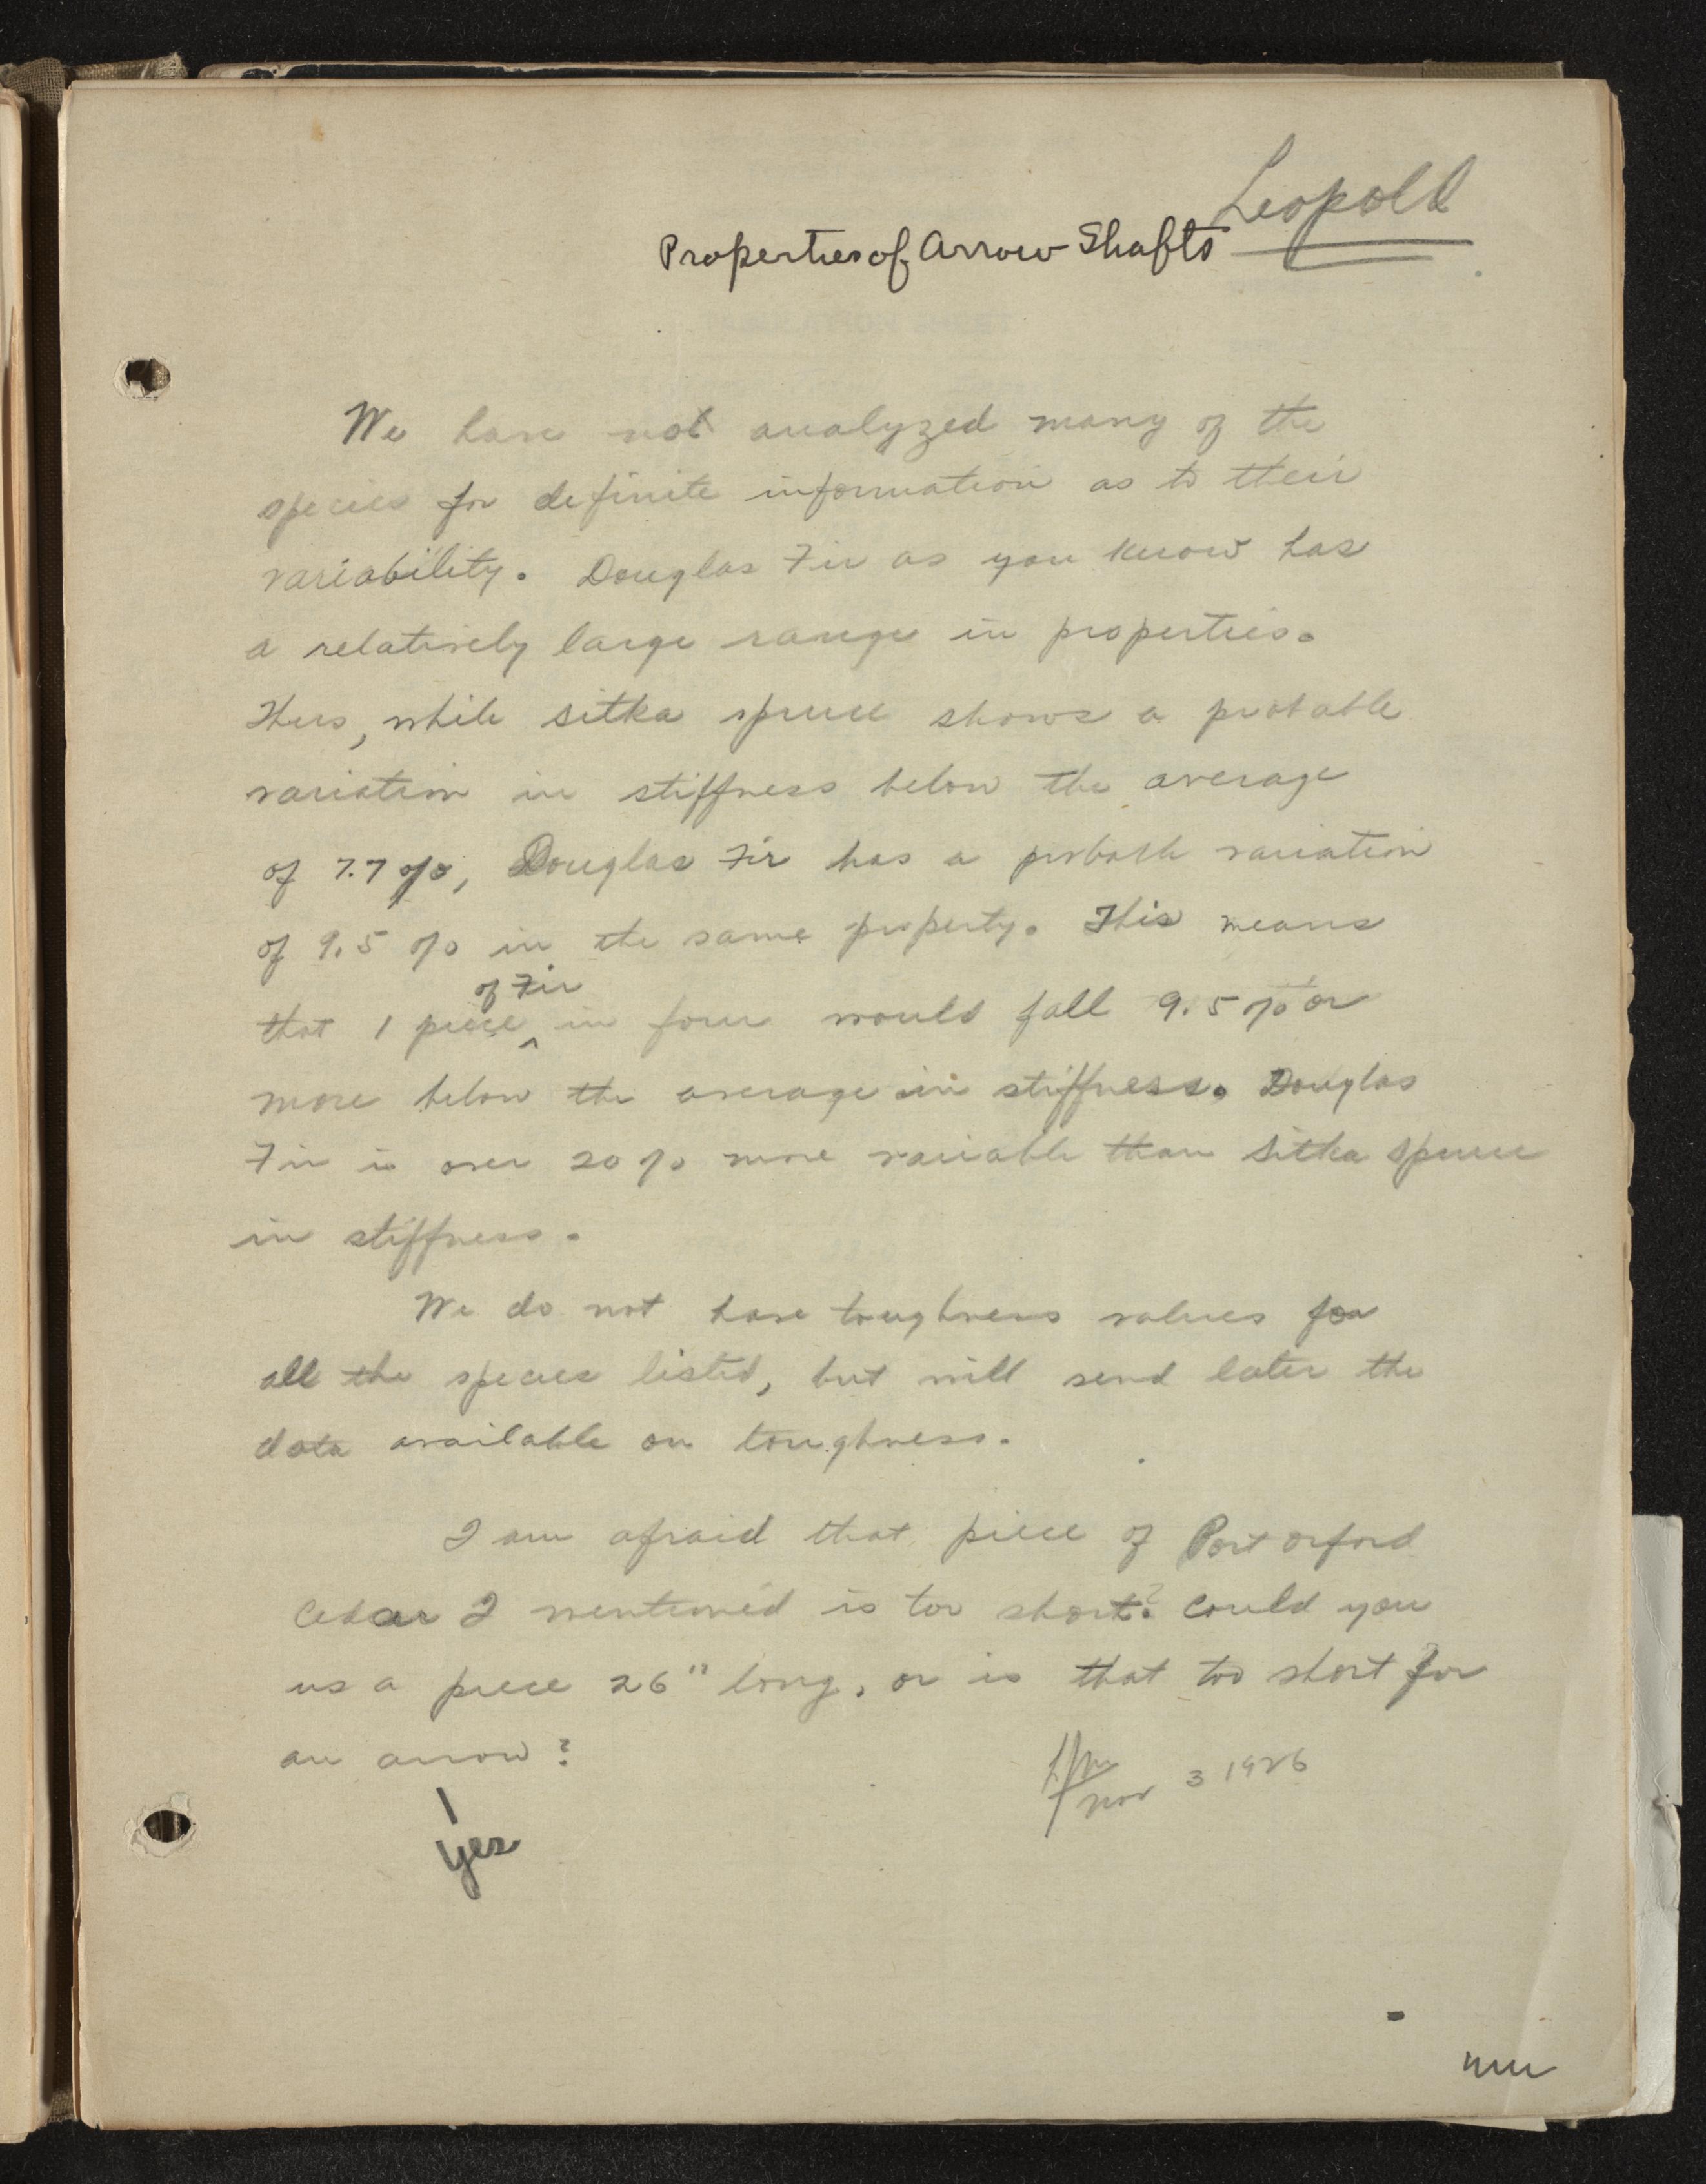 Leopold
Properties of Arrow Shafts
We have not analyzed many of the
species for definite information as to their
variability. Douglas Fir as you know has
a relatively large range in properties.
Thus, while sitka spruce shows a probable
variation in stiffness below the average
of 7.7 %, Douglas Fir has a probable variation
of 9.5 % in the same property. This means
of Fir
that 1 piece ^ in four would fall 9.5 % or
more below the average in stiffness. Douglas
Fir is over 20 % more variable than Sitka Spruce
in stiffness.
We do not have toughness values for
all the species listed, but will send later the
data available on toughness.
I am afraid that piece of Port Orford
Cedar I mentioned is too short. Could you
us a piece 26" long, or is that too short for
an arrow?
Nov 3 1926
Yes